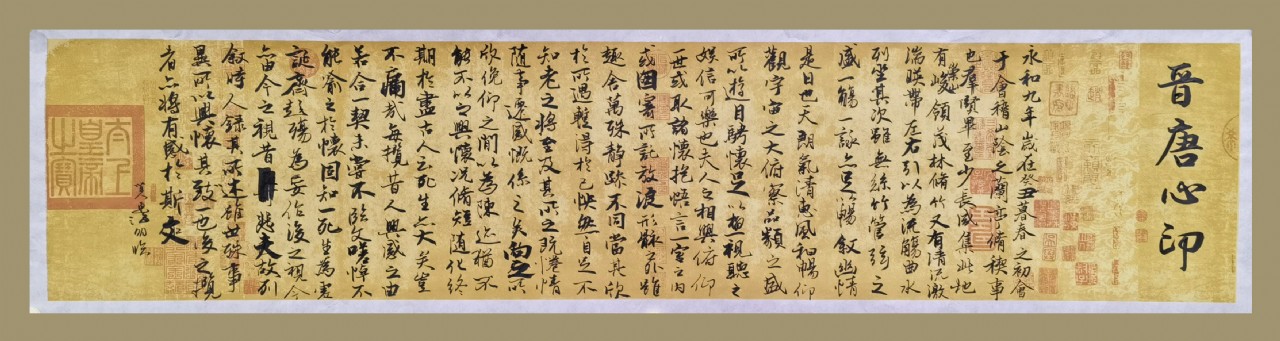 晉唐心印
永和九年歲在癸丑暮春之初會
于會稽山陰之蘭亭脩稧事
也羣賢畢至少長咸集此地
有崇山峻領茂林脩竹又有清流激
湍暎帶左右引以為流觴曲水
列坐其次雖無絲竹管弦之
盛一觴一詠亦足以暢敘幽情
是日也天朗氣清惠風和暢仰
觀宇宙之大俯察品類之盛
所以遊目騁懷足以極視聽之
娛信可樂也夫人之相與俯仰
一世或取諸懷抱悟言一室之內
或因寄所託放浪形骸之外雖
趣舍萬殊靜躁不同當其欣
於所遇暫得於己怏然自足不
知老之將至及其所之既惓情
隨事遷感慨係之矣向之所
欣俛仰之間以為陳迹猶不
能不以之興懷況脩短隨化終
期於盡古人云死生亦大矣豈
不痛哉每攬昔人興感之由
若合一契未嘗不臨文嗟悼不
能喻之於懷固知一死生為虛
誕齊彭殤為妄作後之視今
亦由今之視昔悲夫故列
敘時人錄其所述雖世殊事
異所以興懷其致一也後之攬
者亦將有感於斯文
臨
太上
皇帝
之寶